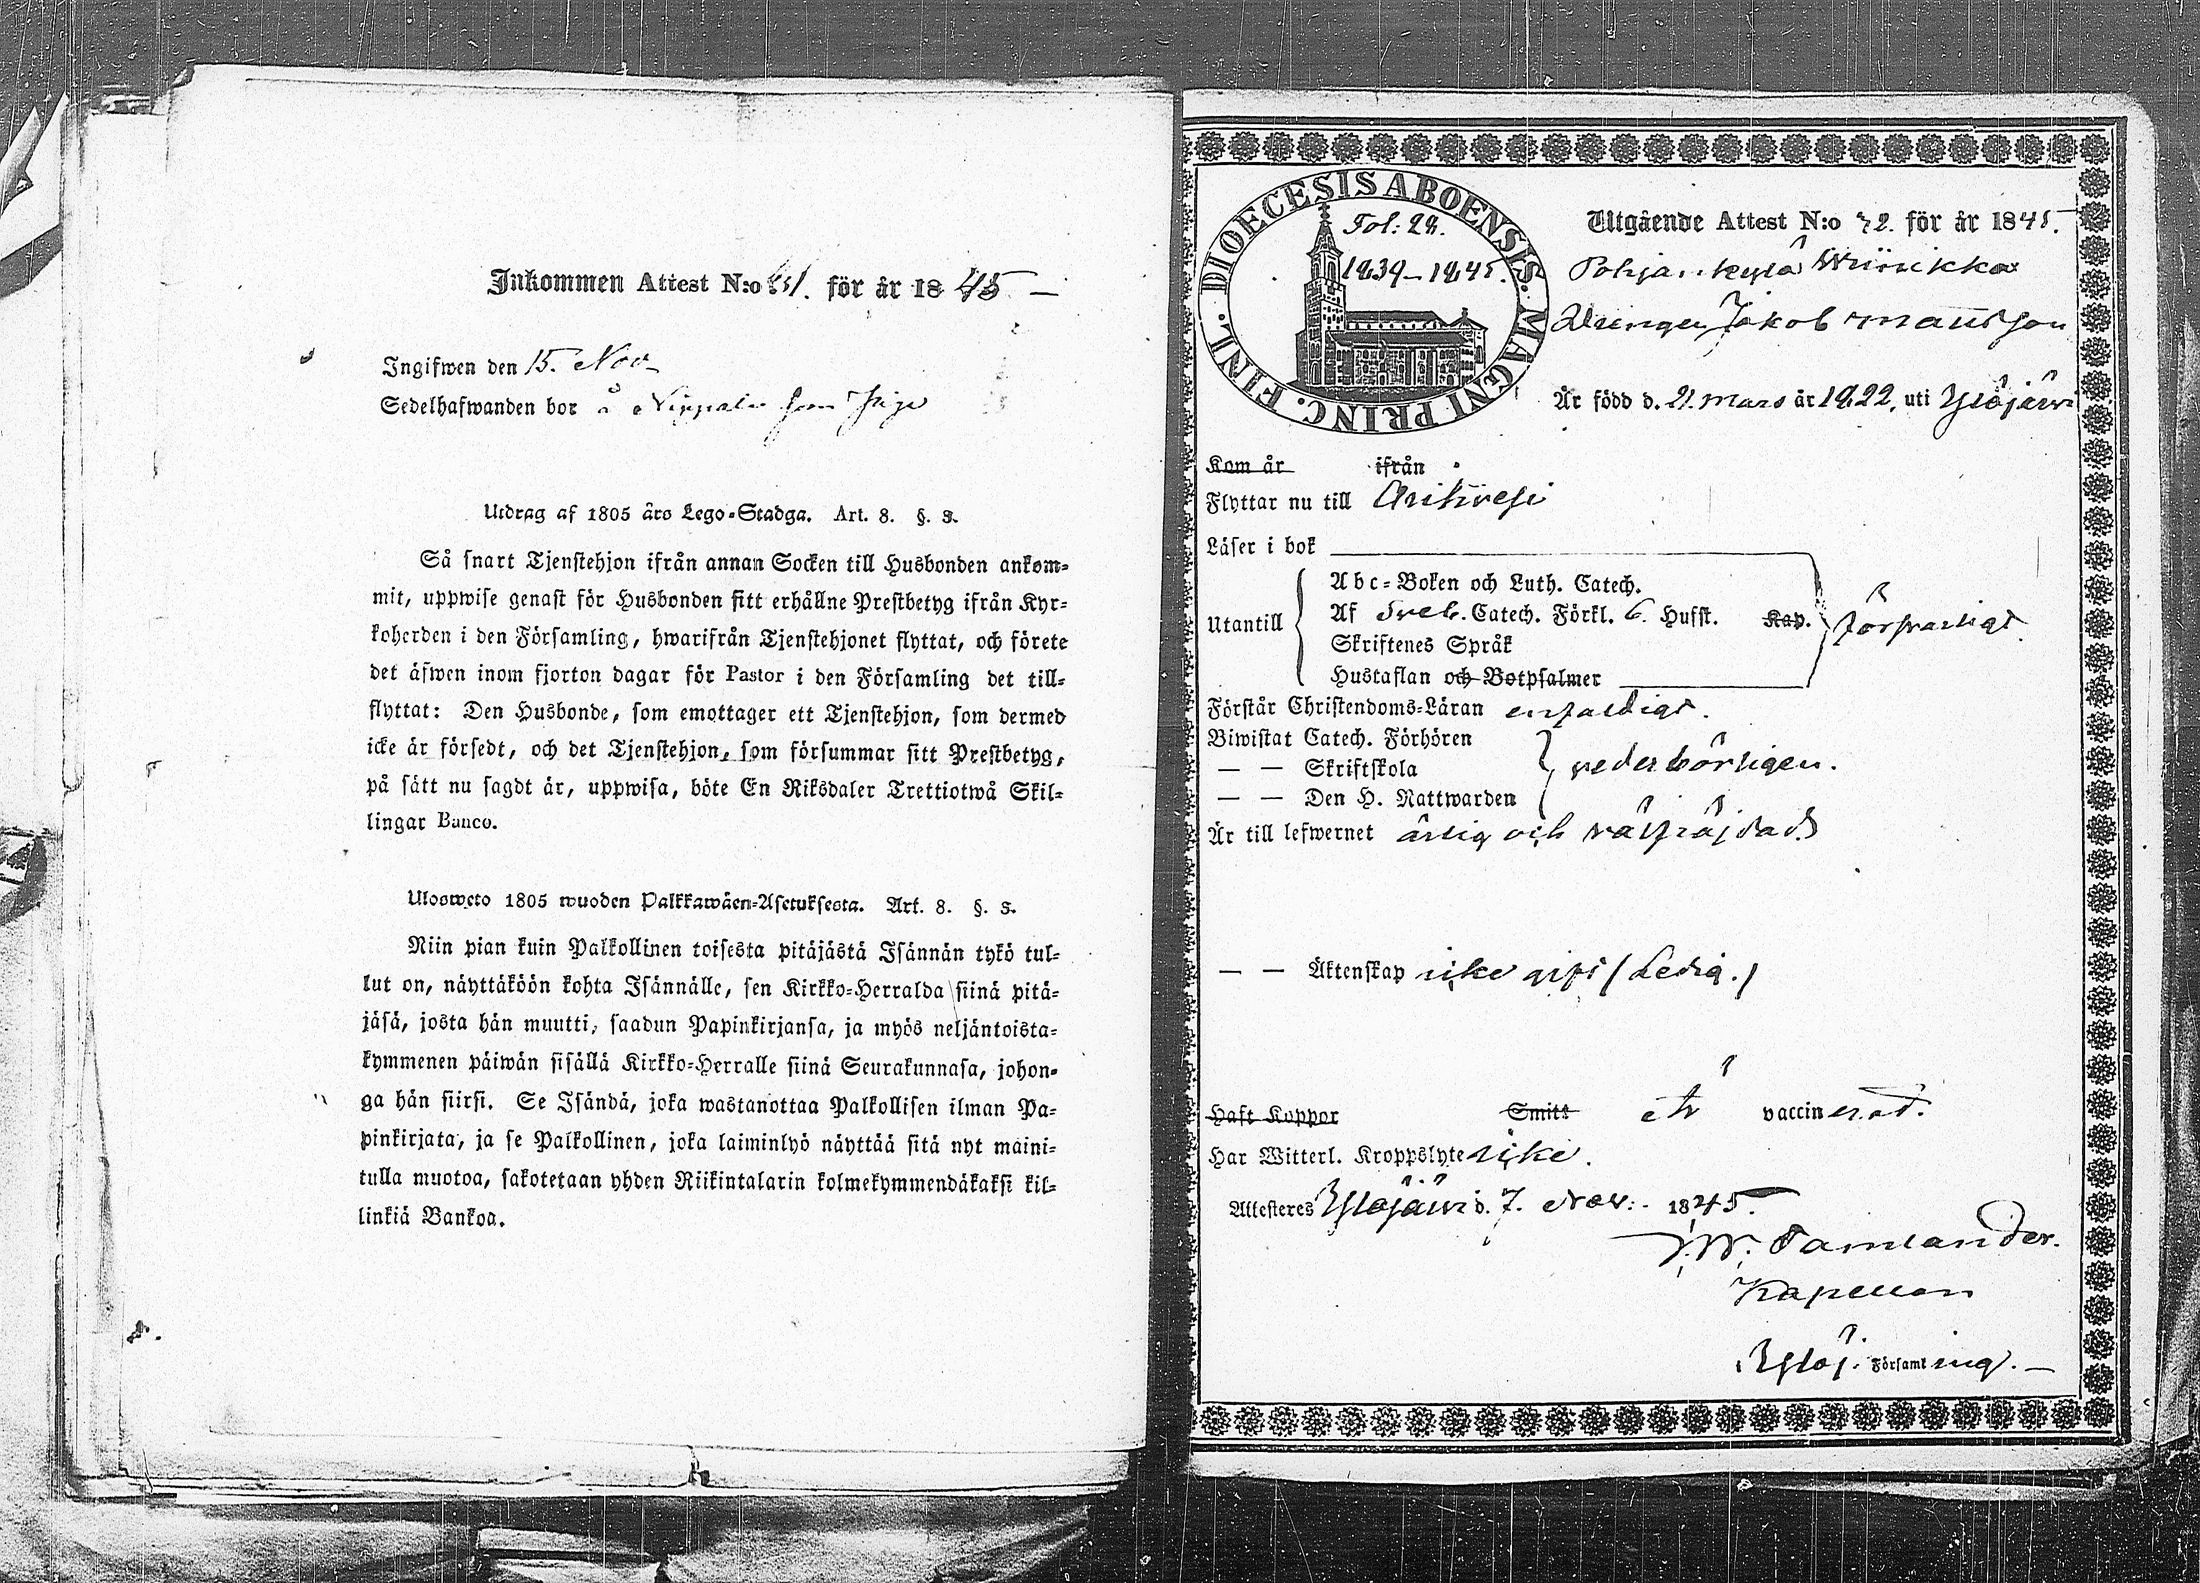 Inkommen Attest N:o 41. för år 1845 —
Ingifwen den 15. Nov
Sedelhafwanden bor å
Utdrag af 1805 års Lego-Stadga. Art. 8. §. 3.
Så snart Tjenstehjon ifrån annan Socken till Husbonden ankom-
mit, uppwise genast för Husbonden sitt erhållne Prestbetyg ifrån Kyr-
koherden i den Församling, hwarifrån Tjenstehjonet flyttat, och förete
det äfwen inom fjorton dagar för Pastor i den Församling det till-
flyttat: Den Husbonde, som emottager ett Tjenstehjon, som dermed
icke är försedt, och det Tjenstehjon, som försummar sitt Prestbetyg,
på sätt nu sagdt är, uppwisa, böte En Riksdaler Trettiotwå Skil-
lingar Banco.
Ulosweto 1805 wuoden Palkkawäen-Asetuksesta. Art. 8. §. 3.
Niin pian kuin Palkollinen toisesta pitäjästä Isännän tykö tul-
lut on, näyttäköön kohta Isännälle, sen Kirkko-Herralda siinä pitä-
jäsä, josta hän muutti, saadun Papinkirjansa, ja myös neljäntoista-
kymmenen päiwän sisällä Kirkko-Herralle siinä Seurakunnasa, johon-
ga hän siirsi. Se Isändä, joka wastanottaa Palkollisen ilman Pa-
pinkirjata, ja se Palkollinen, joka laiminlyö näyttää sitä nyt maini-
tulla muotoa, sakotetaan yhden Riikintalarin kolmekymmendäkaksi kil-
linkiä Bankoa.
DIOECESIS ABOENSIS. MAGNI PRINC. FINL.
Fol: 28.
1839–1845.
Utgående Attest N:o 72. för år 1845.
Pohjankylä Wiinikka
Drengen Jakob Mattsson
Är född d. 21. Mars år 1822, uti Ylöjärwi
Kom år ifrån
Flyttar nu till Oriwesi
Läser i bok
Utantill
Abc-Boken och Luth. Catech.
Af Sveb. Catech. Förkl. 6. Hufst. Kap.
Skriftenes Språk
Hustaflan och Botpsalmer
försvarligt.
Förstår Christendoms-Läran enfaldigt.
Biwistat Catech. Förhören
— — Skriftskola
— — Den H. Nattwarden
vederbörligen.
Är till lefwernet ärlig och wälfräjdad.
— — Äktenskap icke gift (Ledig.)
Haft Koppor Smitt är vaccinerad.
Har Witterl. Kroppslyte icke.
Attesteres Ylöjärwi d. 7. Nov. 1845.
Kapellan
Ylöj. Församling. —